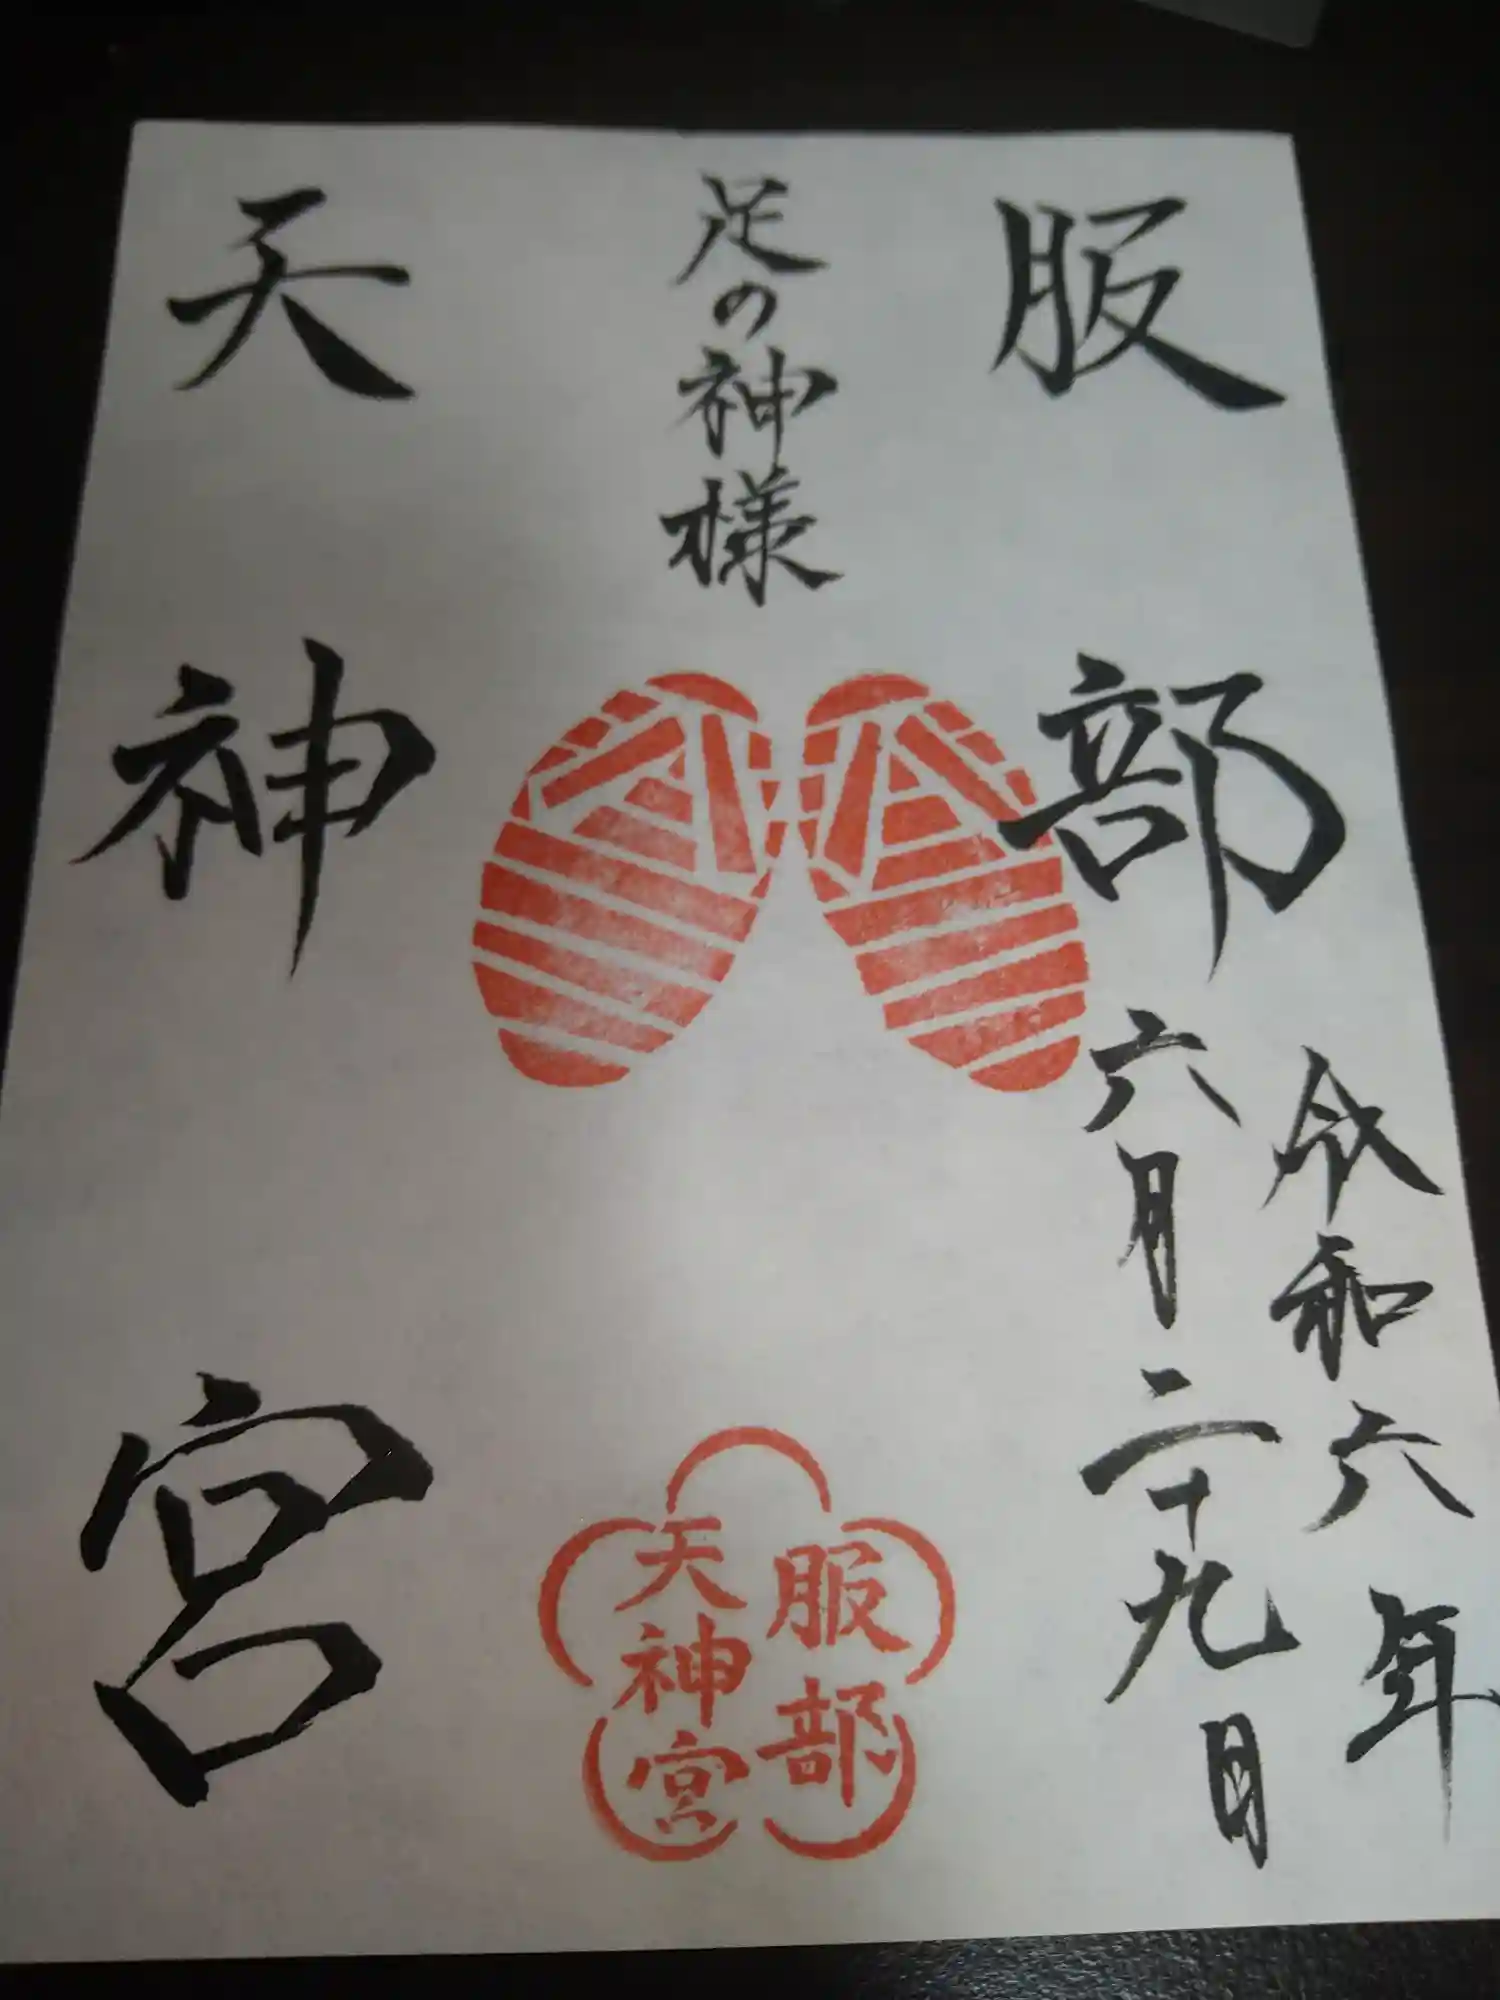 服部
足の神様
天神宮
令和六年
六月二十九日
服部
天神宮